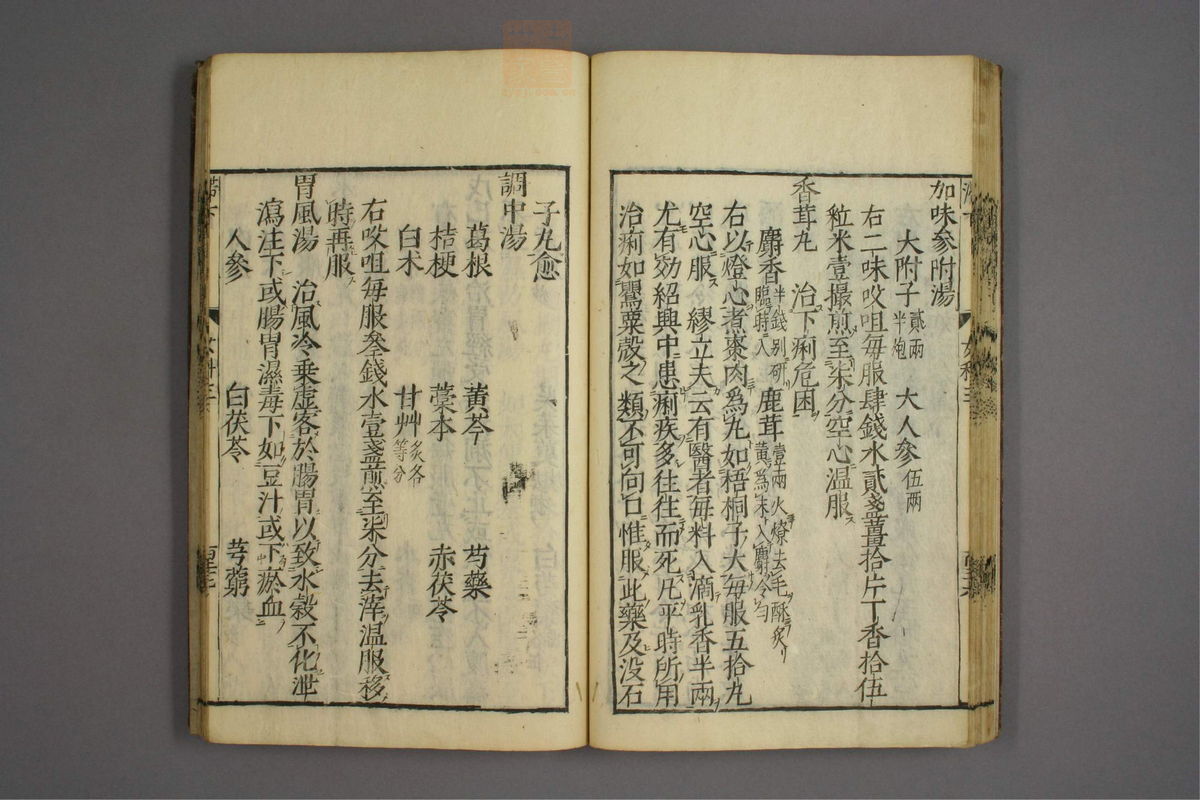 加味參附湯
大附子貳兩半炮 大人參伍兩
右二味㕮咀每服肆錢水貳盞薑拾片丁香拾伍
粒米壹撮煎至柒分空心温服
香茸丸 治下痢危困
麝香半錢别研臨時入 鹿茸壹兩火燎去毛酥炙黄爲末入麝令勻
右以燈心煮棗肉爲丸如梧桐子大每服五拾丸
空心服 繆立夫云有醫者每料入滴乳香半兩
尤有効紹興中患痢疾多往往而死凡平時所用
治痢如罌粟殻之類不可向口惟服此藥及没石
子丸愈
調中湯
葛根 黄芩 芍藥
桔梗 藁本 赤茯苓
白术 甘艸炙各等分
右㕮咀每服叄錢水壹盞煎至柒分去滓温服移
時再服
胃風湯 治風冷乗虚客於腸胃以致水榖不化泄
瀉注下或腸胃濕毒下如豆汁或下瘀血
人參 白茯苓 芎藭